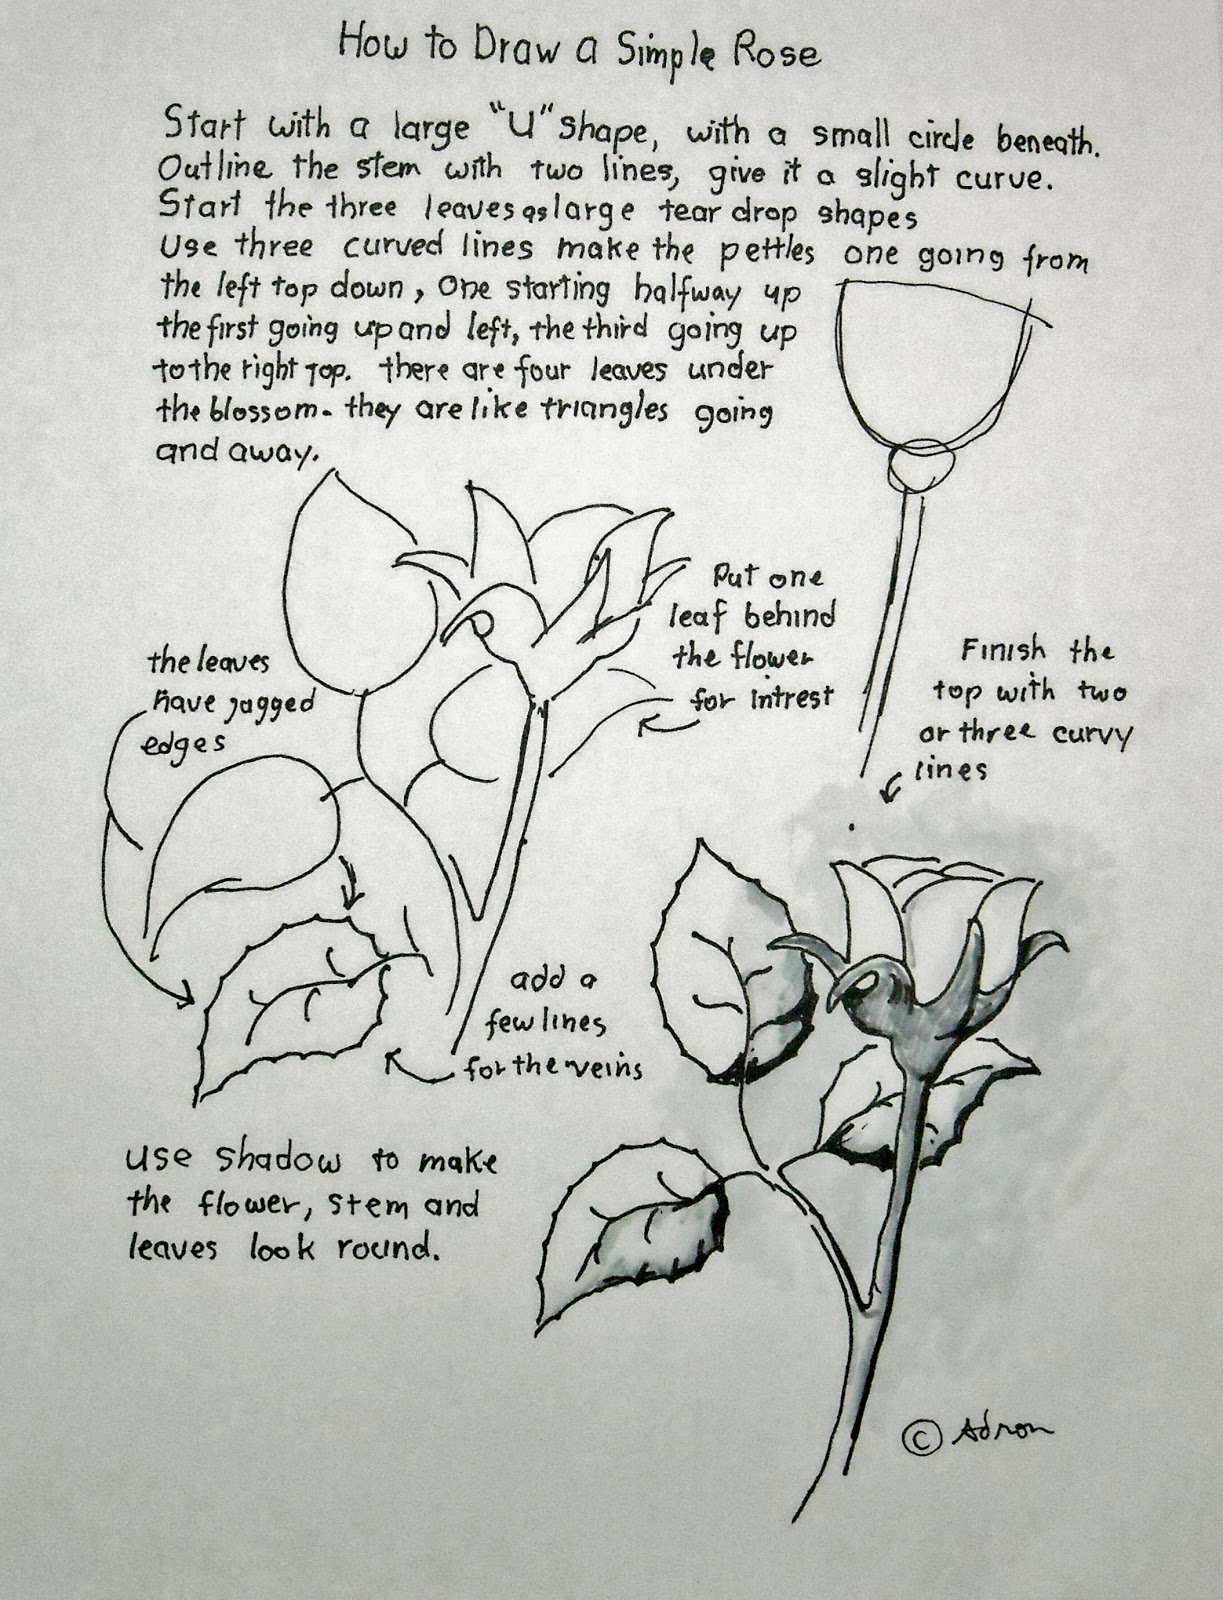 How to Draw a Simple Rose
Start with a large "U" shape, with a small circle beneath.
Outline the stem with two lines, give it a slight curve.
Start the three leaves as large tear drop shapes
Use three curved lines make the pettles one going from
the left top down, One starting halfway up
the first going up and left, the third going up
to the right top. there are four leaves under
the blossom. they are like triangles going
and away.
Put one
leaf behind
the flower
for intrest
the leaves
have jagged
edges
Finish the
top with two
or three curvy
lines
add a
few lines
for the veins
use shadow to make
the flower, stem and
leaves look round.
© Adron